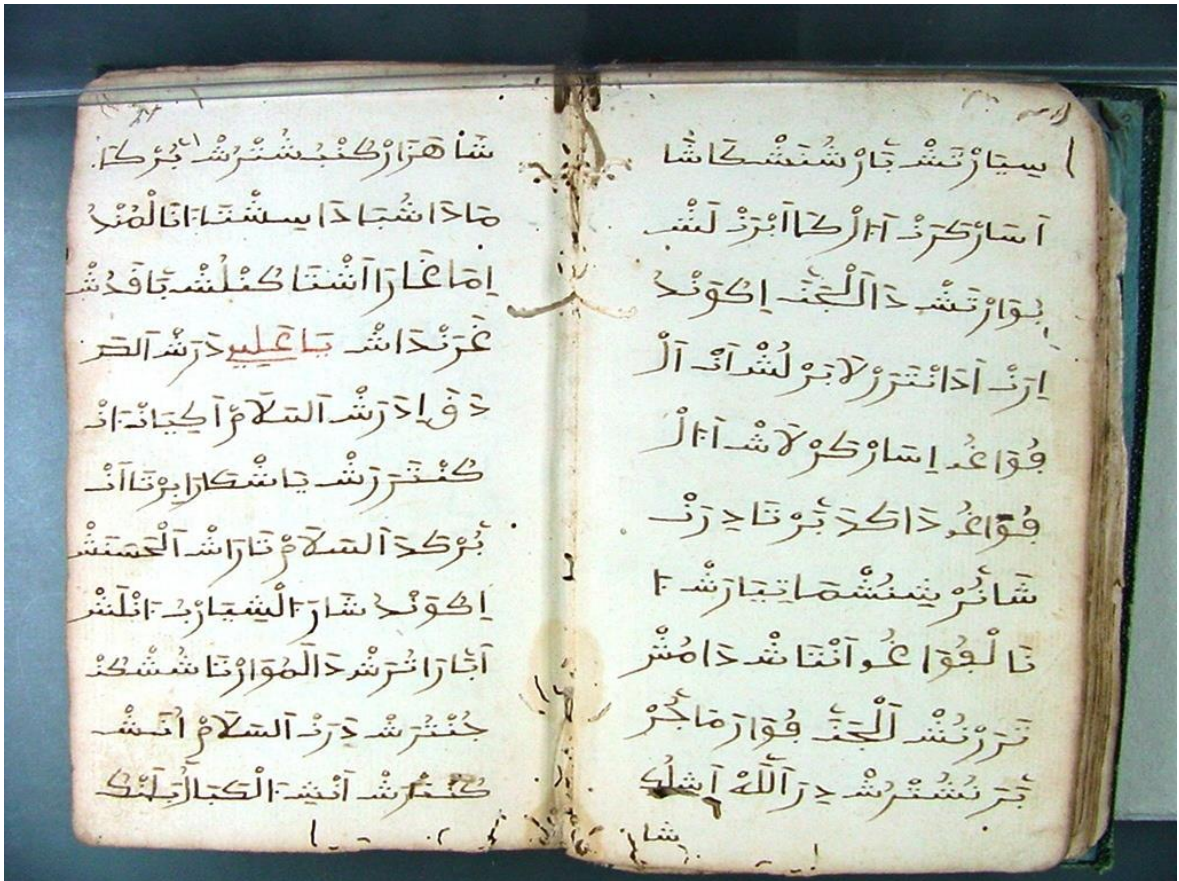 سِيَارْتَشْ بَّارْ شُنَشْكَاشَا
اَسَارْكَرَنْ اَالْ كَمَا اَبْرَنْ لَشْ
بُوَارْتَشْ دَاَلْجَنَّ إِكُوَنْدُ
إِرَنْ اَدَانْتَرَرْ لَا بَرْ لُشْ اَنْ اَلْ
فُوَاغُ إِسَارْكَرْ لَاشْ اَالْ
فُوَاغُ دَاكَدَ بَّرْتَا دِرَنْ
شَانُّرْ شِنُشْ مَاتِيَارَشْ ا
نَالْفُوَاغُ اَنْتَاشْ دَامُشْ
تَرَرْنُشْ اَلْجَنَّ فُوَارَ مَاجُرْ
بَّرَ نُشُتْرُشْ دِرَ اَللَّهْ اَشِلُكِ
شا
شَا هَرَارْ كُنْبُشُتْرُشْ بُّرْكَا
مَادَاشُبَادَاسِشْتَا اَنَالْمُنْدُ
إِمَاغَارَا اَشْتَا كُنْلُشْ بَّاقَدُشْ
غَرَنْدَاشْ يَا عَلِي دَرَشْ اَلصَّدَ
دَقَ إِدَرَشْ اَلسَّلَامْ اَكِيَانْ اَنْ
كُنْتَرَرَشْ بَاشْكَارَابِرْتَا اَنْ
بُّرْكَدَ اَلسَّلَامْ تَارَاشْ اَلْحَسَنَشْ
إِكُوَنْدُ شَارَ الْشِيَارْبُ اَنْلَشْ
اَبَّارَاتُرَشْ دَالَمُوَارْتَا شُشْكُنْ
جُنْتُرَشْ دِرَنْ اَلسَّلَامْ اُنَشْ
كُنْتَارَشْ اَنْشِ الْكَبَالُ بَلَنْكُ